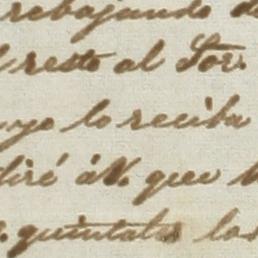 rebajando d
l resto al Sor.
uyo lo reciba
diré á V. que
quintales las